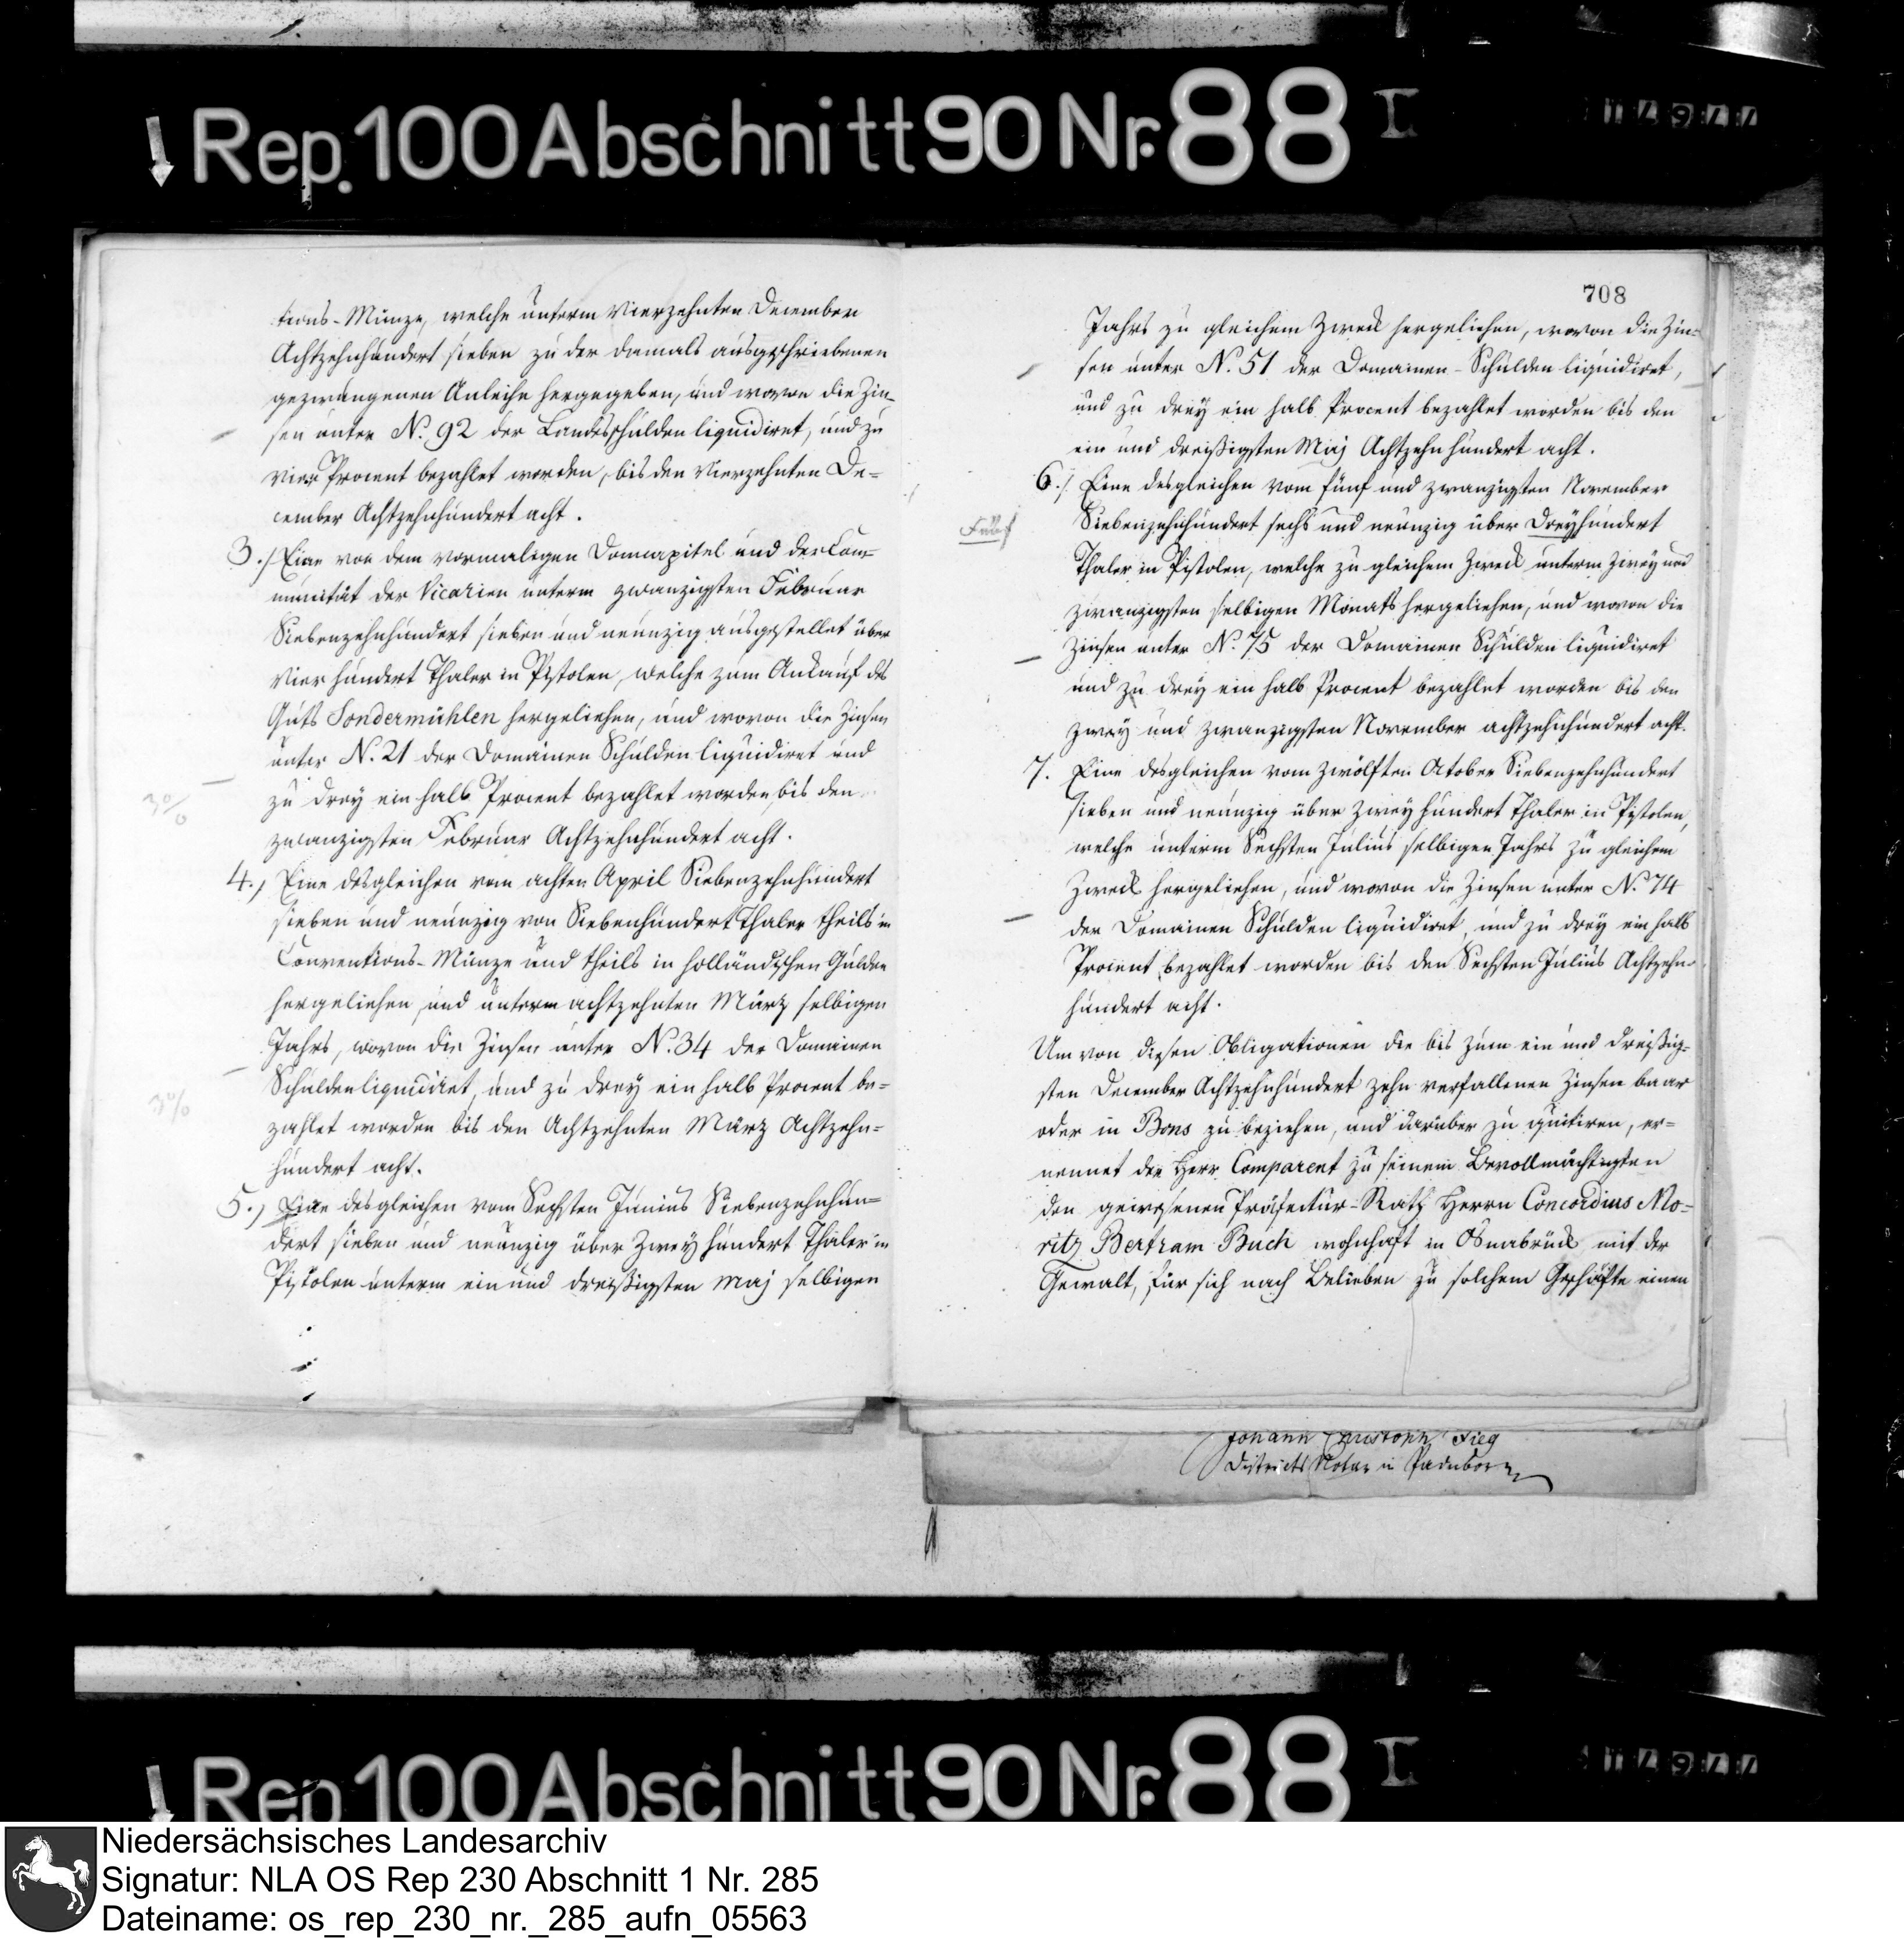 Rep. 100 Abschnitt 90 Nr. 88 I
tions-Münze, welche unterm Vierzehnten December
Achtzehnhundert sieben zu der damals ausgeschriebenen
gezwungenen Anleihe hergegeben, und wovon die Zin-
sen unter N. 92 der Landesschulden liquidiret, und zu
vier Procent bezahlet worden, bis den Vierzehnten De-
cember Achtzehnhundert acht.
3./ Eine von dem vormaligen Domcapitel und der Com-
munität der Vicarien unterm zwanzigsten Februar
Siebenzehnhundert sieben und neunzig ausgestellet über
Vier hundert Thaler in Pistolen, welche zum Ankauf des
Guts Sondermühlen hergeliehen, und wovon die Zinsen
unter N. 21 der Domainen Schulden liquidiret und
zu drey ein halb Procent bezahlet worden, bis den
zwanzigsten Februar Achtzehnhundert acht.
3%
4., Eine desgleichen vom achten April Siebenzehnhundert
sieben und neunzig von Siebenhundert Thaler theils in
Conventions-Münze und theils in holländischen Gulden
hergeliehen, und unterm achtzehnten März selbigen
Jahrs, wovon die Zinsen unter N. 34 der Domainen
Schulden liquidiret, und zu drey ein halb Procent be-
zahlet worden bis den Achtzehnten März Achtzehn-
hundert acht.
3%
5., Eine desgleichen vom Sechsten Junius Siebenzehnhun-
dert sieben und neunzig über Zwey hundert Thaler in
Pistolen unterm ein und dreißigsten Maj selbigen
708
Jahrs zu gleichem Zweck hergeliehen, wovon die Zin-
sen unter N. 51 der Domainen-Schulden liquidiret,
und zu drey ein halb Procent bezahlet worden bis den
ein und dreißigsten Maj Achtzehn hundert acht.
6./ Eine desgleichen vom fünf und zwanzigsten November
Siebenzehnhundert sechs und neunzig über Dreyhundert
Thaler in Pistolen, welche zu gleichem Zweck unterm zwey und
zwanzigsten selbigen Monats hergeliehen, und wovon die
Zinsen unter N. 75 der Domainen Schulden liquidiret
und zu drey ein halb Procent bezahlet worden bis den
zwey und zwanzigsten November achtzehnhundert acht.
7. Eine desgleichen vom zwölften October Siebenzehnhundert
sieben und neunzig über Zwey hundert Thaler in Pistolen,
welche unterm Sechsten Julius selbigen Jahrs zu gleichem
Zweck hergeliehen, und wovon die Zinsen unter N. 74
der Domainen Schulden liquidiret, und zu drey ein halb
Procent bezahlet worden bis den Sechsten Julius Achtzehn-
hundert acht.
Um von diesen Obligationen die bis zum ein und dreißig-
sten December Achtzehnhundert zehn verfallenen Zinsen baar
oder in Bons zu beziehen, und darüber zu quitiren, er-
nennet der Herr Comparent zu seinem Bevollmächtigten
den gewesenen Präfectur-Rath Herrn Concordius Mo-
ritz Bertram Buch wohnhaft in Osnabrück mit der
Gewalt, für sich nach Belieben zu solchem Geschäfte einen
Johann Christoph
Districts Notar in Paderborn
Rep 100 Abschnitt 90 Nr. 88 I
Niedersächsisches Landesarchiv
Signatur: NLA OS Rep 230 Abschnitt 1 Nr. 285
Dateiname: os_rep_230_nr._285_aufn_05563